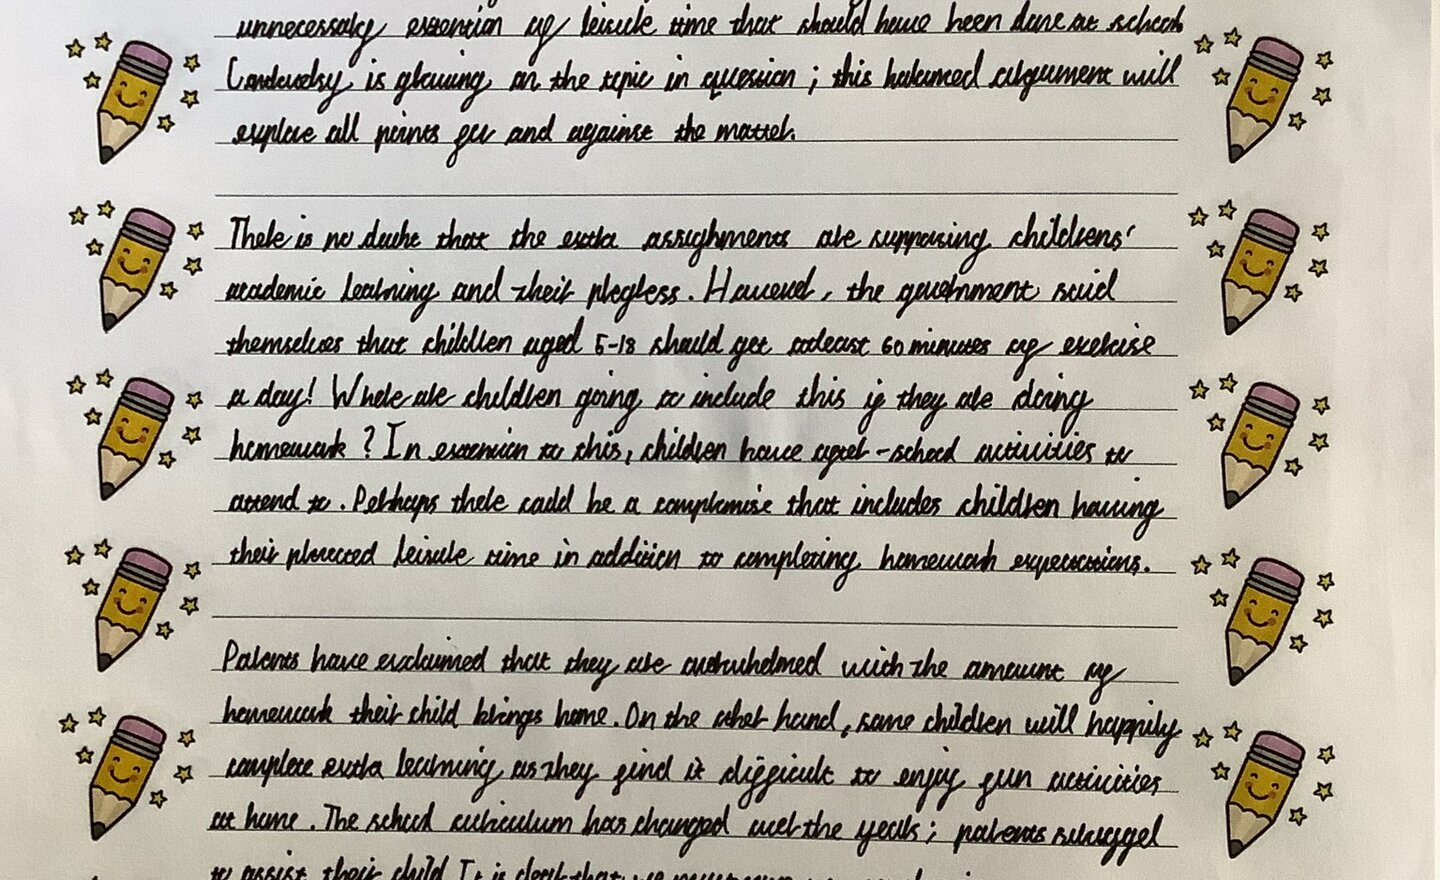 unnecessary extention of leisure time that should have been done at school.
Controversy is growing on the topic in question ; this balanced argument will
explore all points for and against the matter.
There is no doubt that the extra assighments are supporsing childrens'
academic learning and their progress. However, the government said
themselves that children aged 5-18 should get atleast 60 minutes of exercise
a day! Where are children going to include this if they are doing
homework? In extension to this, children have after-school activities to
attend to. Perhaps there could be a compromise that includes children having
their protected leisure time in addition to completing homework expectations.
Parents have exclaimed that they are overwhelmed with the amount of
homework their child brings home. On the other hand, some children will happily
complete extra learning as they find it difficult to enjoy fun activities
at home. The school curriculum has changed over the years; parents struggel
to assist their child. It is clear that we must